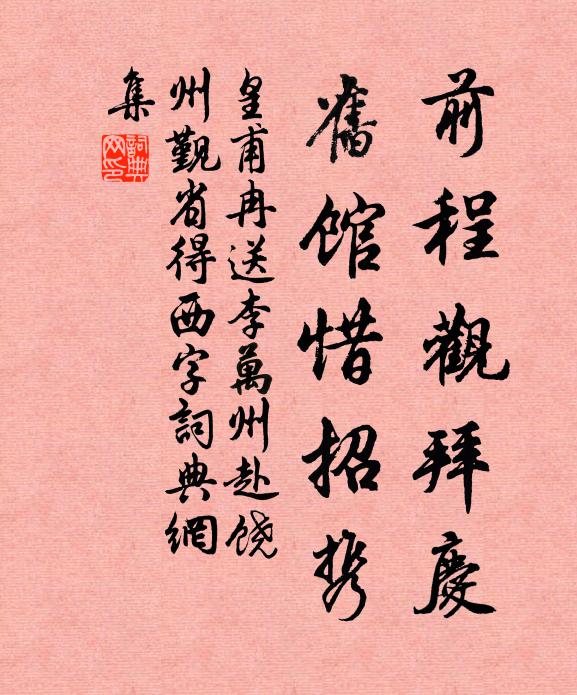 前程觀拜慶
舊馆惜招携
皇甫冉送李萬州赴饶
州觐省得西字詞典網
集
詞典網印